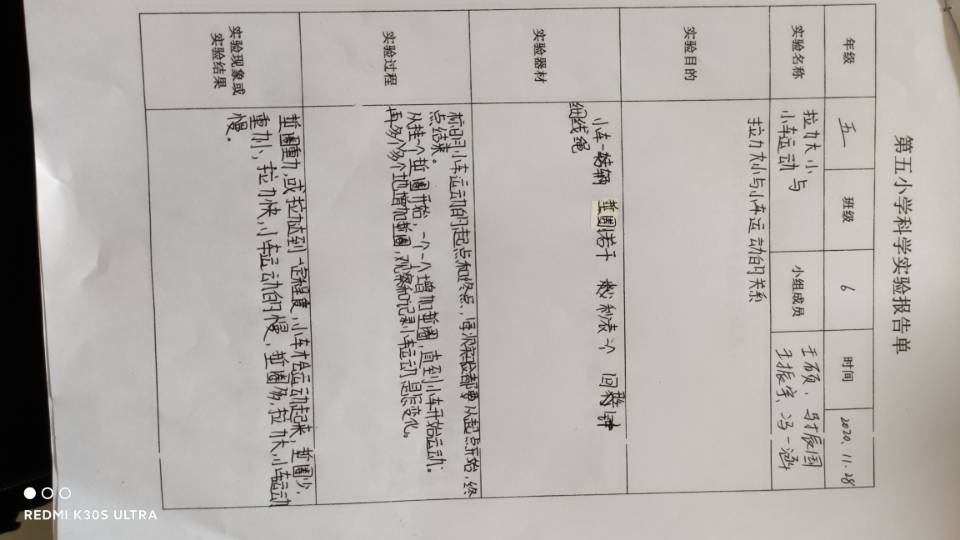 第五小学科学实验报告单
年级 五 班级 6 时间 2020.11.28
实验名称 拉力大小与 小组成员 王硕、马振国
小车运动 王振宇、冯一涵
实验目的 拉力大小与小车运动的关系
实验器材 小车一辆 垫圈若干 秒表
细线绳
实验过程 标明小车运动的起点和终点,每次实验都要从起点开始,终
点结束。
从挂一个垫圈开始,一个一个增加垫圈,直到小车开始运动。
再多个多个地增加垫圈,观察和记录小车运动是否变化。
实验现象或
实验结果
垫圈重力,或拉力达到一定程度,小车才会运动起来,垫圈少,
重力小,拉力快,小车运动的慢,垫圈多,拉力大,小车运动
慢。
REDMI K30S ULTRA